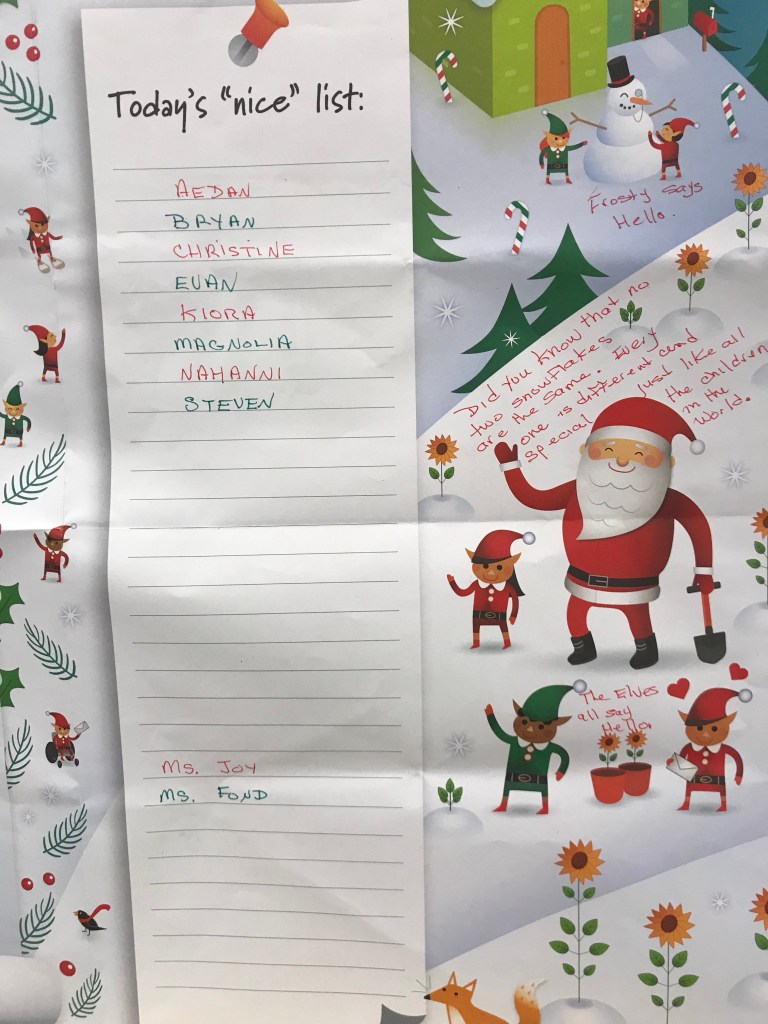 Today's "nice" list:
AEDAN
BRYAN
CHRISTINE
EVAN
KIORA
MAGNOLIA
NAHANNI
STEVEN
Ms. Joy
Ms. FOND
Frosty says
Hello.
Did you know that no
two snowflakes
are the same. Every
one is different and
special just like all
the children
in the
world.
The Elves
all say
Hello.